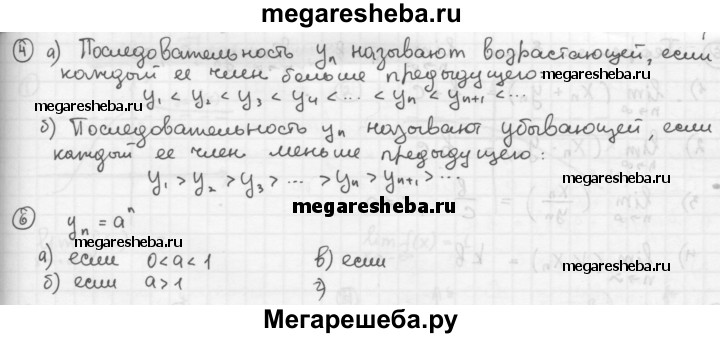 megaresheba.ru
④ а) Последовательность yn называют возрастающей, если
каждый ее член больше предыдущего:
megaresheba.ru
y₁ < y₂ < y₃ < y₄ < ... < yₙ < yₙ₊₁ < ...
megaresheba.ru
б) Последовательность yn называют убывающей, если
каждый ее член меньше предыдущего:
y₁ > y₂ > y₃ > ... > yₙ > yₙ₊₁ > ...
megaresheba.ru
⑥ yₙ = aⁿ
megaresheba.ru
megaresheba.ru
а) если 0 < a < 1
в) если
б) если a > 1
г)
Мегарешеба.ру